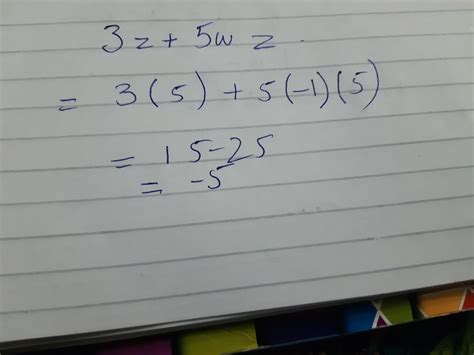 3z + 5wz.
= 3(5) + 5(-1)(5)
= 15-25
= -5